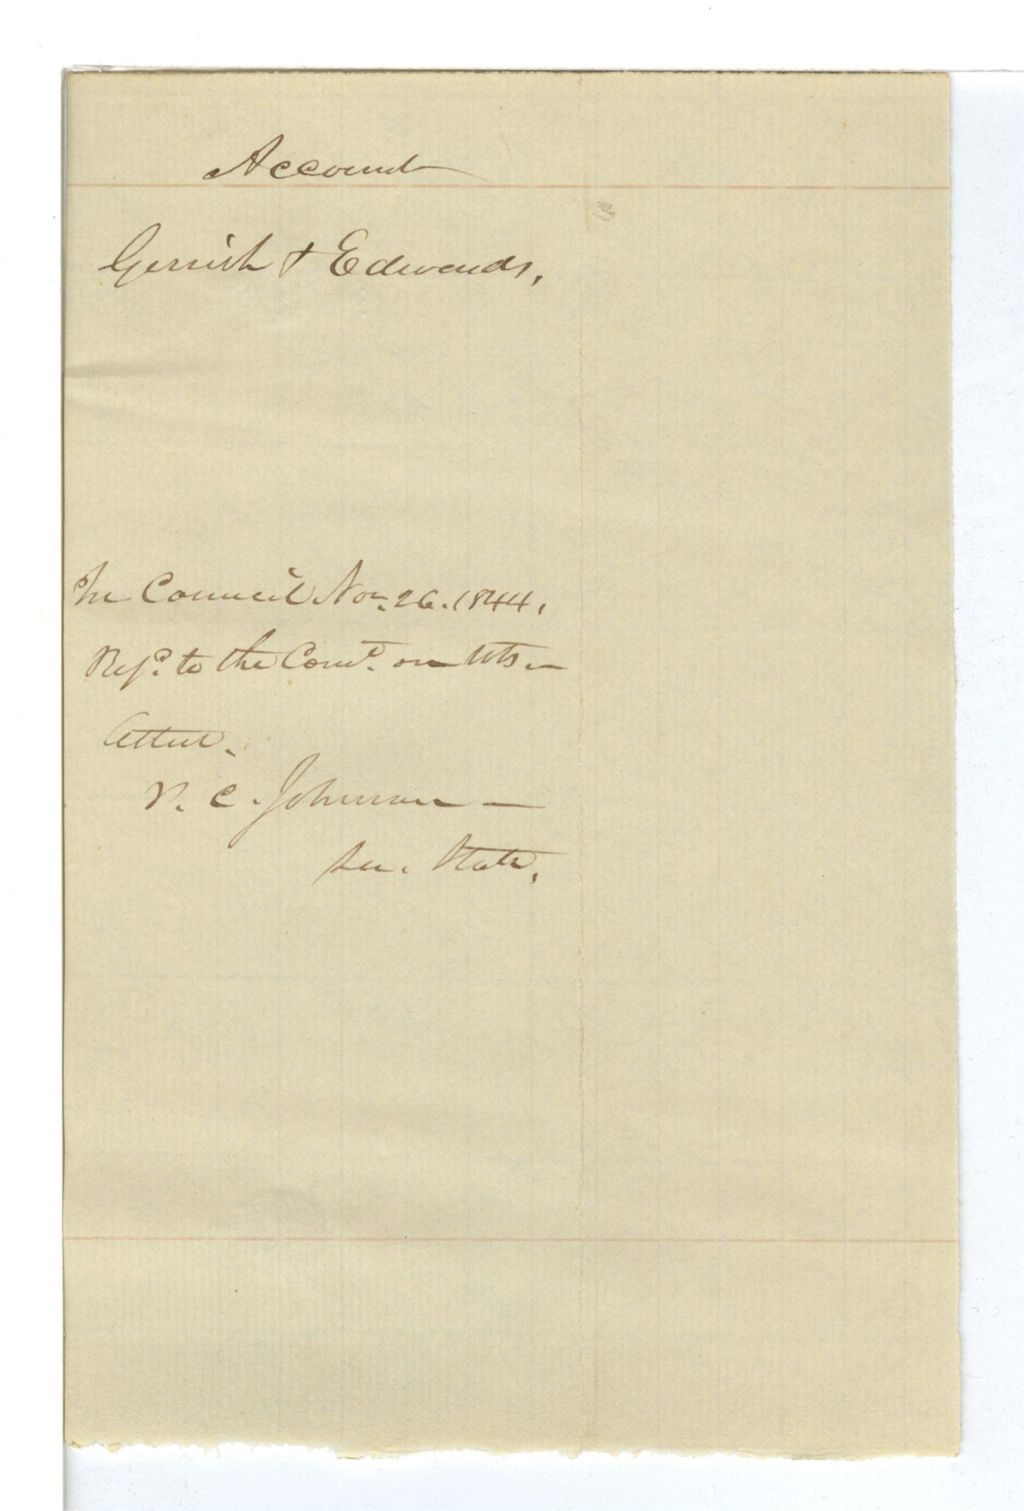 Account
Gerrish & Edwards.
In Council Nov. 26. 1844.
Refd. to the Comt. on
Attest.
P. C. Johnson
Sec. State.